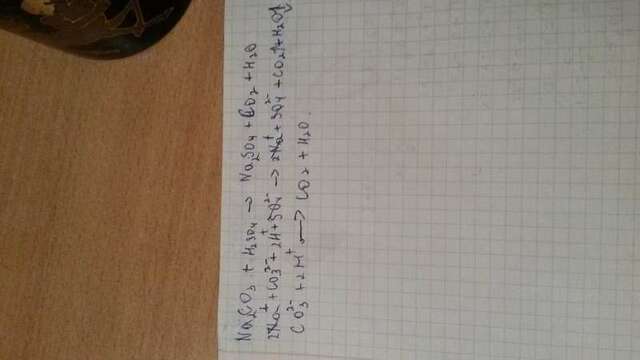 Na₂CO₃ + H₂SO₄ → Na₂SO₄ + CO₂ + H₂O
2Na⁺ + CO₃²⁻ + 2H⁺ + SO₄²⁻ → 2Na⁺ + SO₄²⁻ + CO₂↑ + H₂O
CO₃²⁻ + 2H⁺ → CO₂ + H₂O.